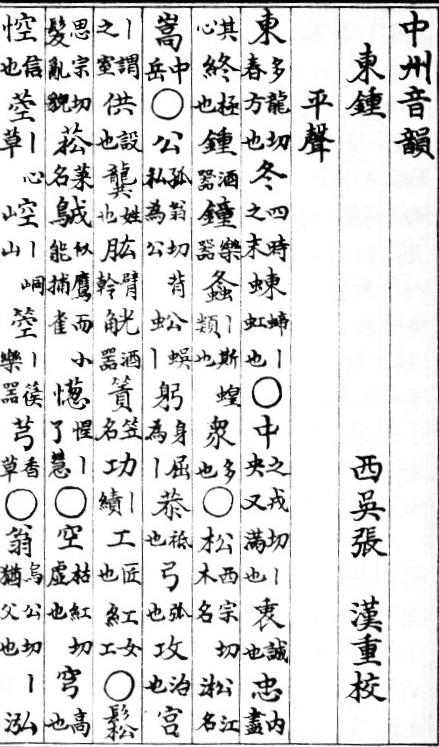 中州音韻
東鍾 西吳張 漢重校
平聲
東多龍切春方也冬四時之末蝀螮丨虹也○中之戎切丨央又滿也衷誠也忠內盡
其心終極也鍾酒器鐘樂器螽丨斯蝗類也衆多也○松西宗切木名淞江名
嵩中岳○公孤翁切背私為公蚣蜈丨躬身屈為丨恭祗也弓弧也攻治也宮
丨謂之室供設也龔姓也肱臂幹觥酒器篢笠名功丨績工匠也紅女工○鬆
思宗切髮亂貌菘菜名似鷹而小能捕雀惺丨了慧○空枯紅切虛也穹高也
悾信也丨心草崆丨峒山箜丨篌樂器芎香草○翁烏公切丨猶父也泓